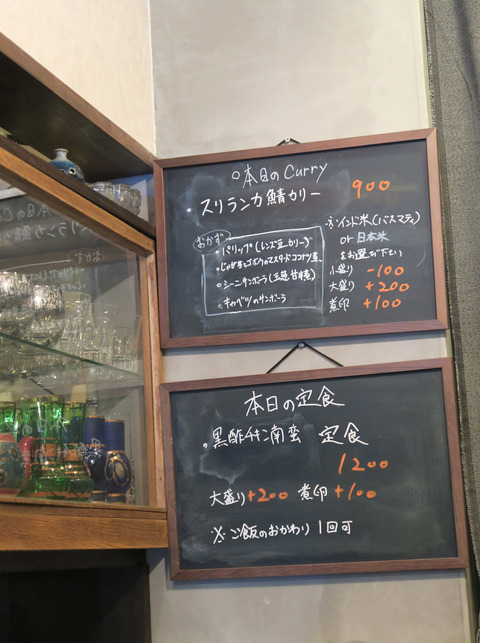 ○本日のCurry
・スリランカ鯖カリー 900
おかず
・パリップ(レンズ豆カリー)
・じゃが芋とゴボウのマスタードココナツ煮
・シーニサンボーラ(玉葱甘辛煮)
・キャベツのサンボーラ
※インド米(バスマティ)
or 日本米
をお選び下さい
小盛り -100
大盛り +200
煮卵 +100
本日の定食
・黒酢チキン南蛮 定食
1200
大盛り+200 煮卵 +100
※ご飯のおかわり 1回可